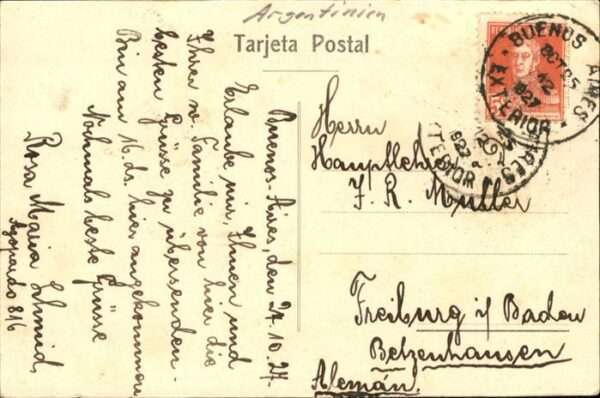 Argentinien
Tarjeta Postal
Buenos-Aires, den 24.10.27.
Erlaube mir, Ihnen und
Ihrer w. Familie von hier die
besten Grüsse zu übersenden.
Bin am 16. ds. hier angekommen
Nochmals beste Grüsse
Rosa Maria Schmid,
Azopardo 816
Herrn
Hauptlehrer
J. R. Müller
Freiburg i/ Baden
Betzenhausen
Alemán.
BUENOS AIRES
OCT 25
12
1927
EXTERIOR